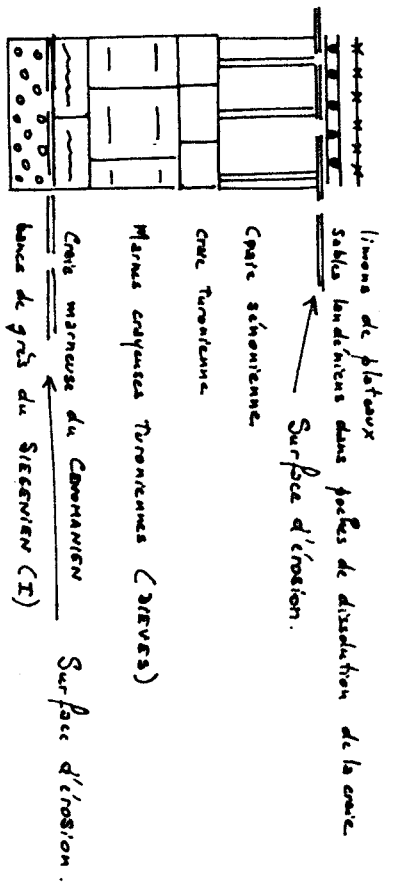 limons de plateaux
sables landéniens dans poches de dissolution de la craie
Surface d'érosion.
Craie sénonienne
Craie Turonienne
Marnes crayeuses Turoniennes (DIEVES)
Craie marneuse du CENOMANIEN
Surface d'érosion.
bancs de grès du SIEGENIEN (I)